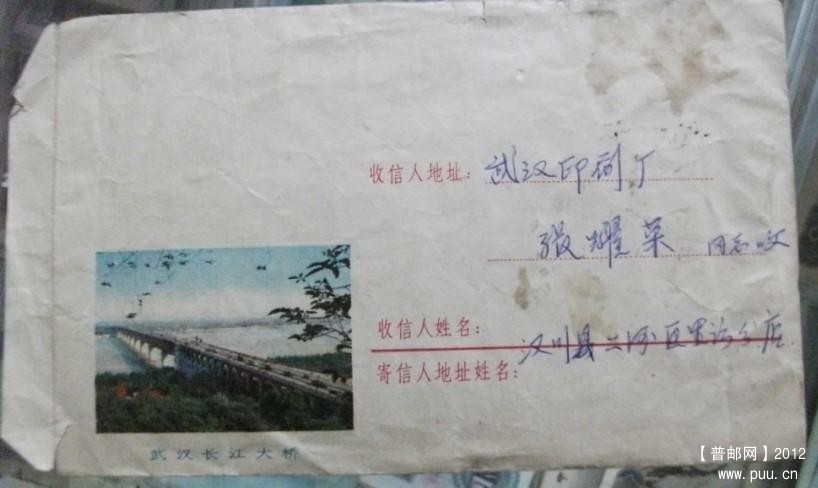 收信人地址：武汉印刷厂
张耀荣 同志收
收信人姓名：
汉川县二河区里潭分店
寄信人地址姓名：
武汉长江大桥
【普邮网】2012
www.puu.cn